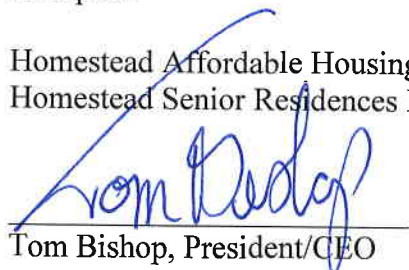 Homestead Affordable Housing
Homestead Senior Residences
Tom Bishop
Tom Bishop, President/CEO